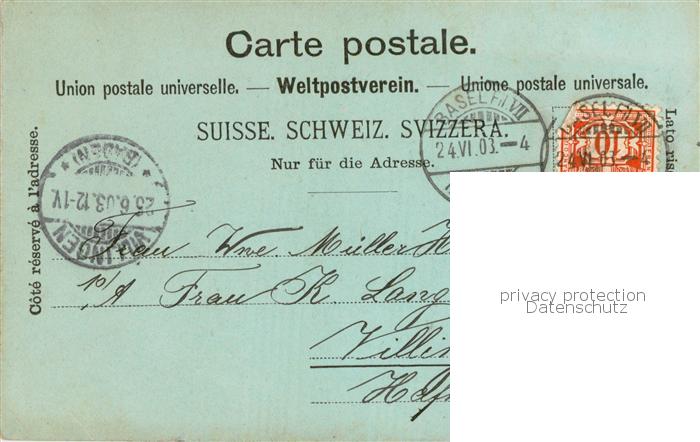 Carte postale.
Union postale universelle. — Weltpostverein. — Unione postale universale.
SUISSE. SCHWEIZ. SVIZZERA.
Nur für die Adresse.
Côté réservé à l'adresse.
Lato ris
BASEL Fil. VII
24.VI.03.—4
BASEL Fil. VII
24.VI.03.—4
10
VILLINGEN
(BADEN)
12-1V.
Frau Wwe. Müller H
p/A Frau K Lang
Villin
privacy protection
Datenschutz